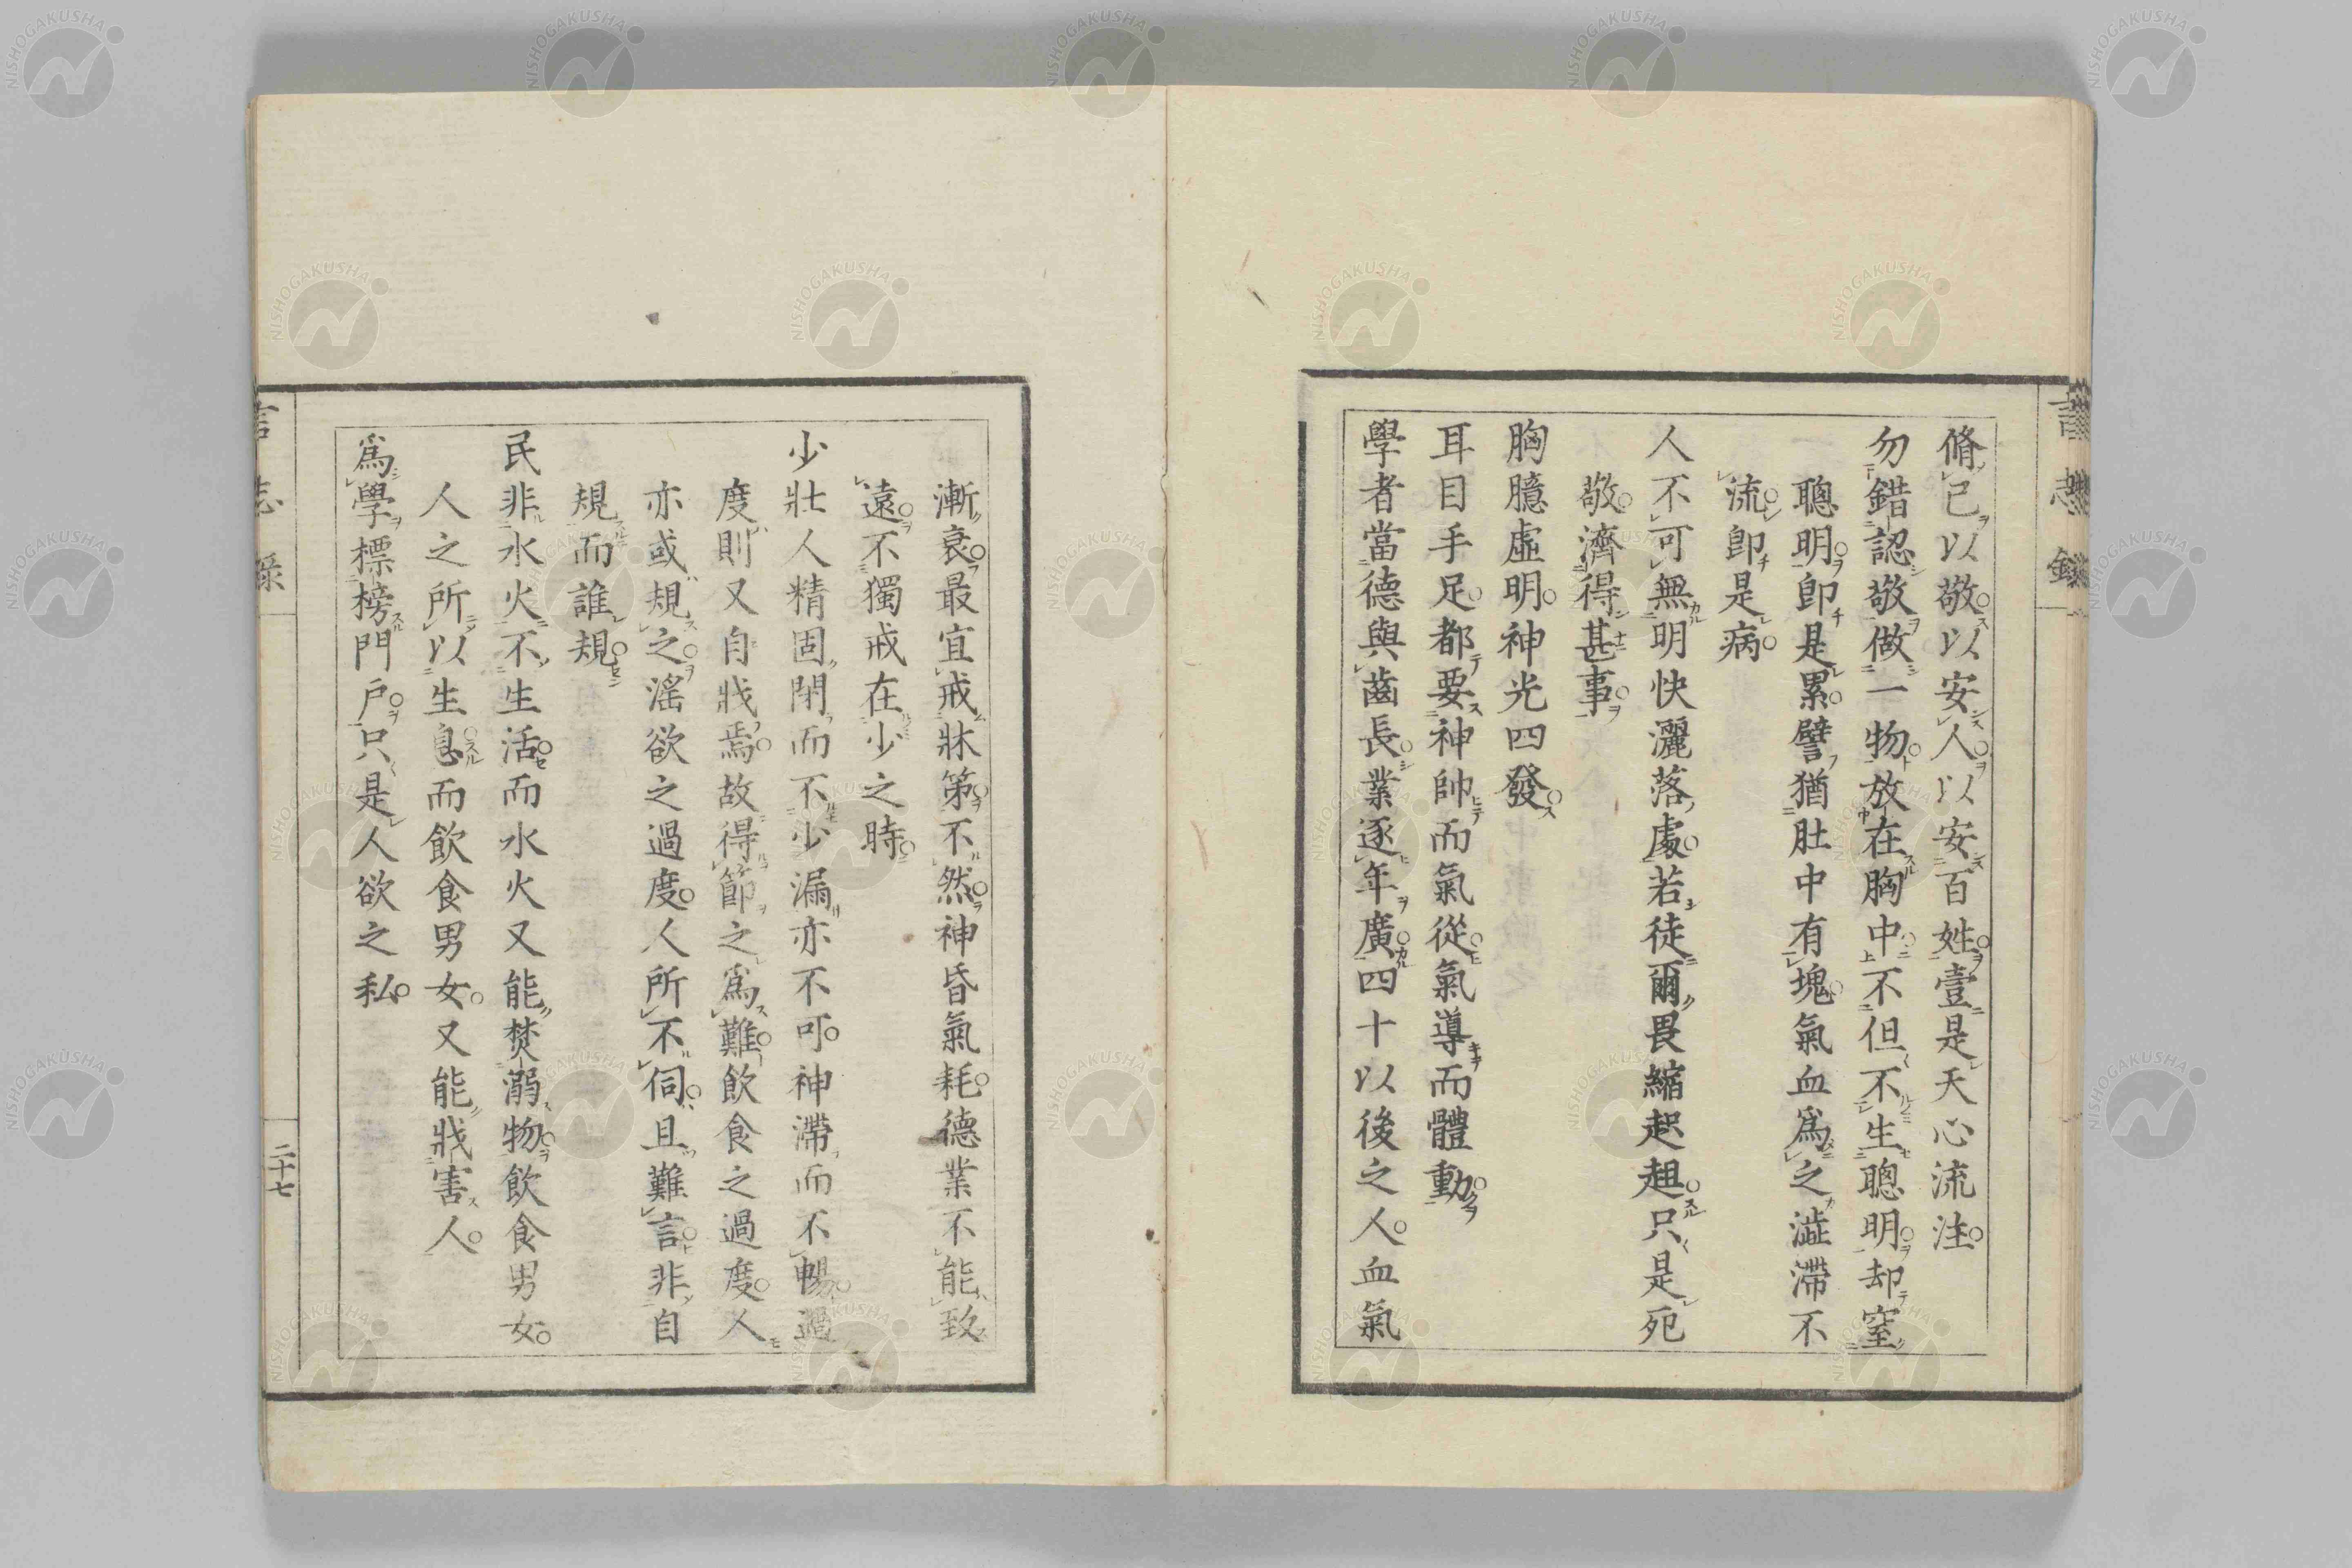 言志録
脩己以敬以安人以安百姓壹是天心流注
勿錯認敬做一物放在胸中不但不生聰明却窒
聰明卽是累譬猶肚中有塊氣血爲之澁滯不
流卽是病
人不可無明快灑落處若徒爾畏縮趑趄只是死
敬濟得甚事
胸臆虛明神光四發
耳目手足都要神帥而氣從氣導而體動
學者當德與齒長業逐年廣四十以後之人血氣
漸衰最宜戒牀笫不然神昏氣耗德業不能致
遠不獨戒在少之時
少壯人精固閉而不少漏亦不可神滯而不暢過
度則又自戕焉故得節之爲難飮食之過度人
亦或規之淫欲之過度人所不伺且難言非自
規而誰規
民非水火不生活而水火又能焚溺物飮食男女
人之所以生息而飮食男女又能戕害人
爲學標榜門戶只是人欲之私
言志錄
二十七
NISHOGAKUSHA